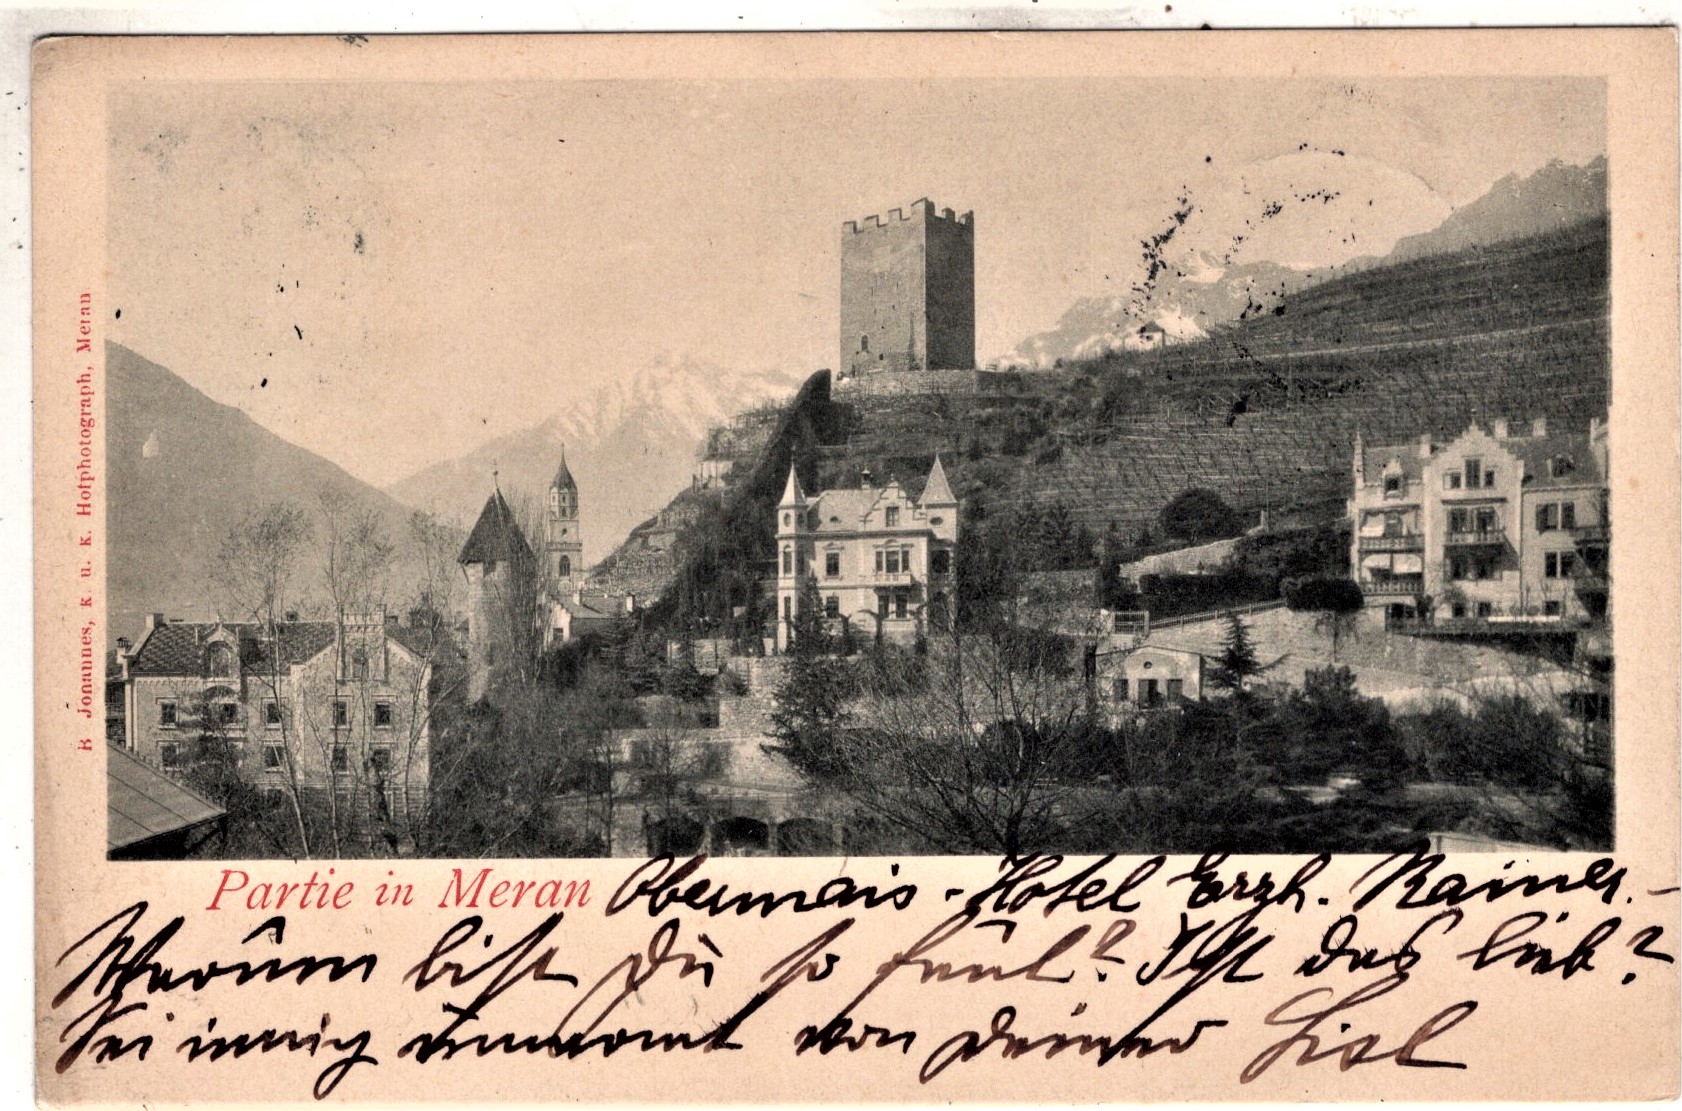 B Johannes, k. u. k. Hofphotograph, Meran
Partie in Meran Obermais - Hotel Erzh. Rainer. -
Warum bist Du so faul? Ist das lieb?
Sei innig umarmt von Deiner Lisl